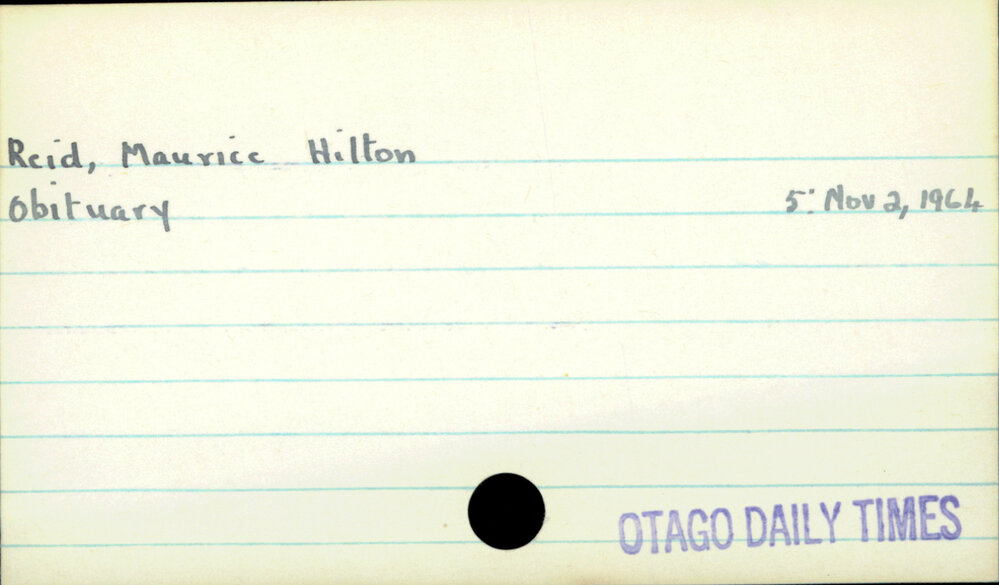 Reid, Maurice Hilton
Obituary 5: Nov 2, 1964
OTAGO DAILY TIMES